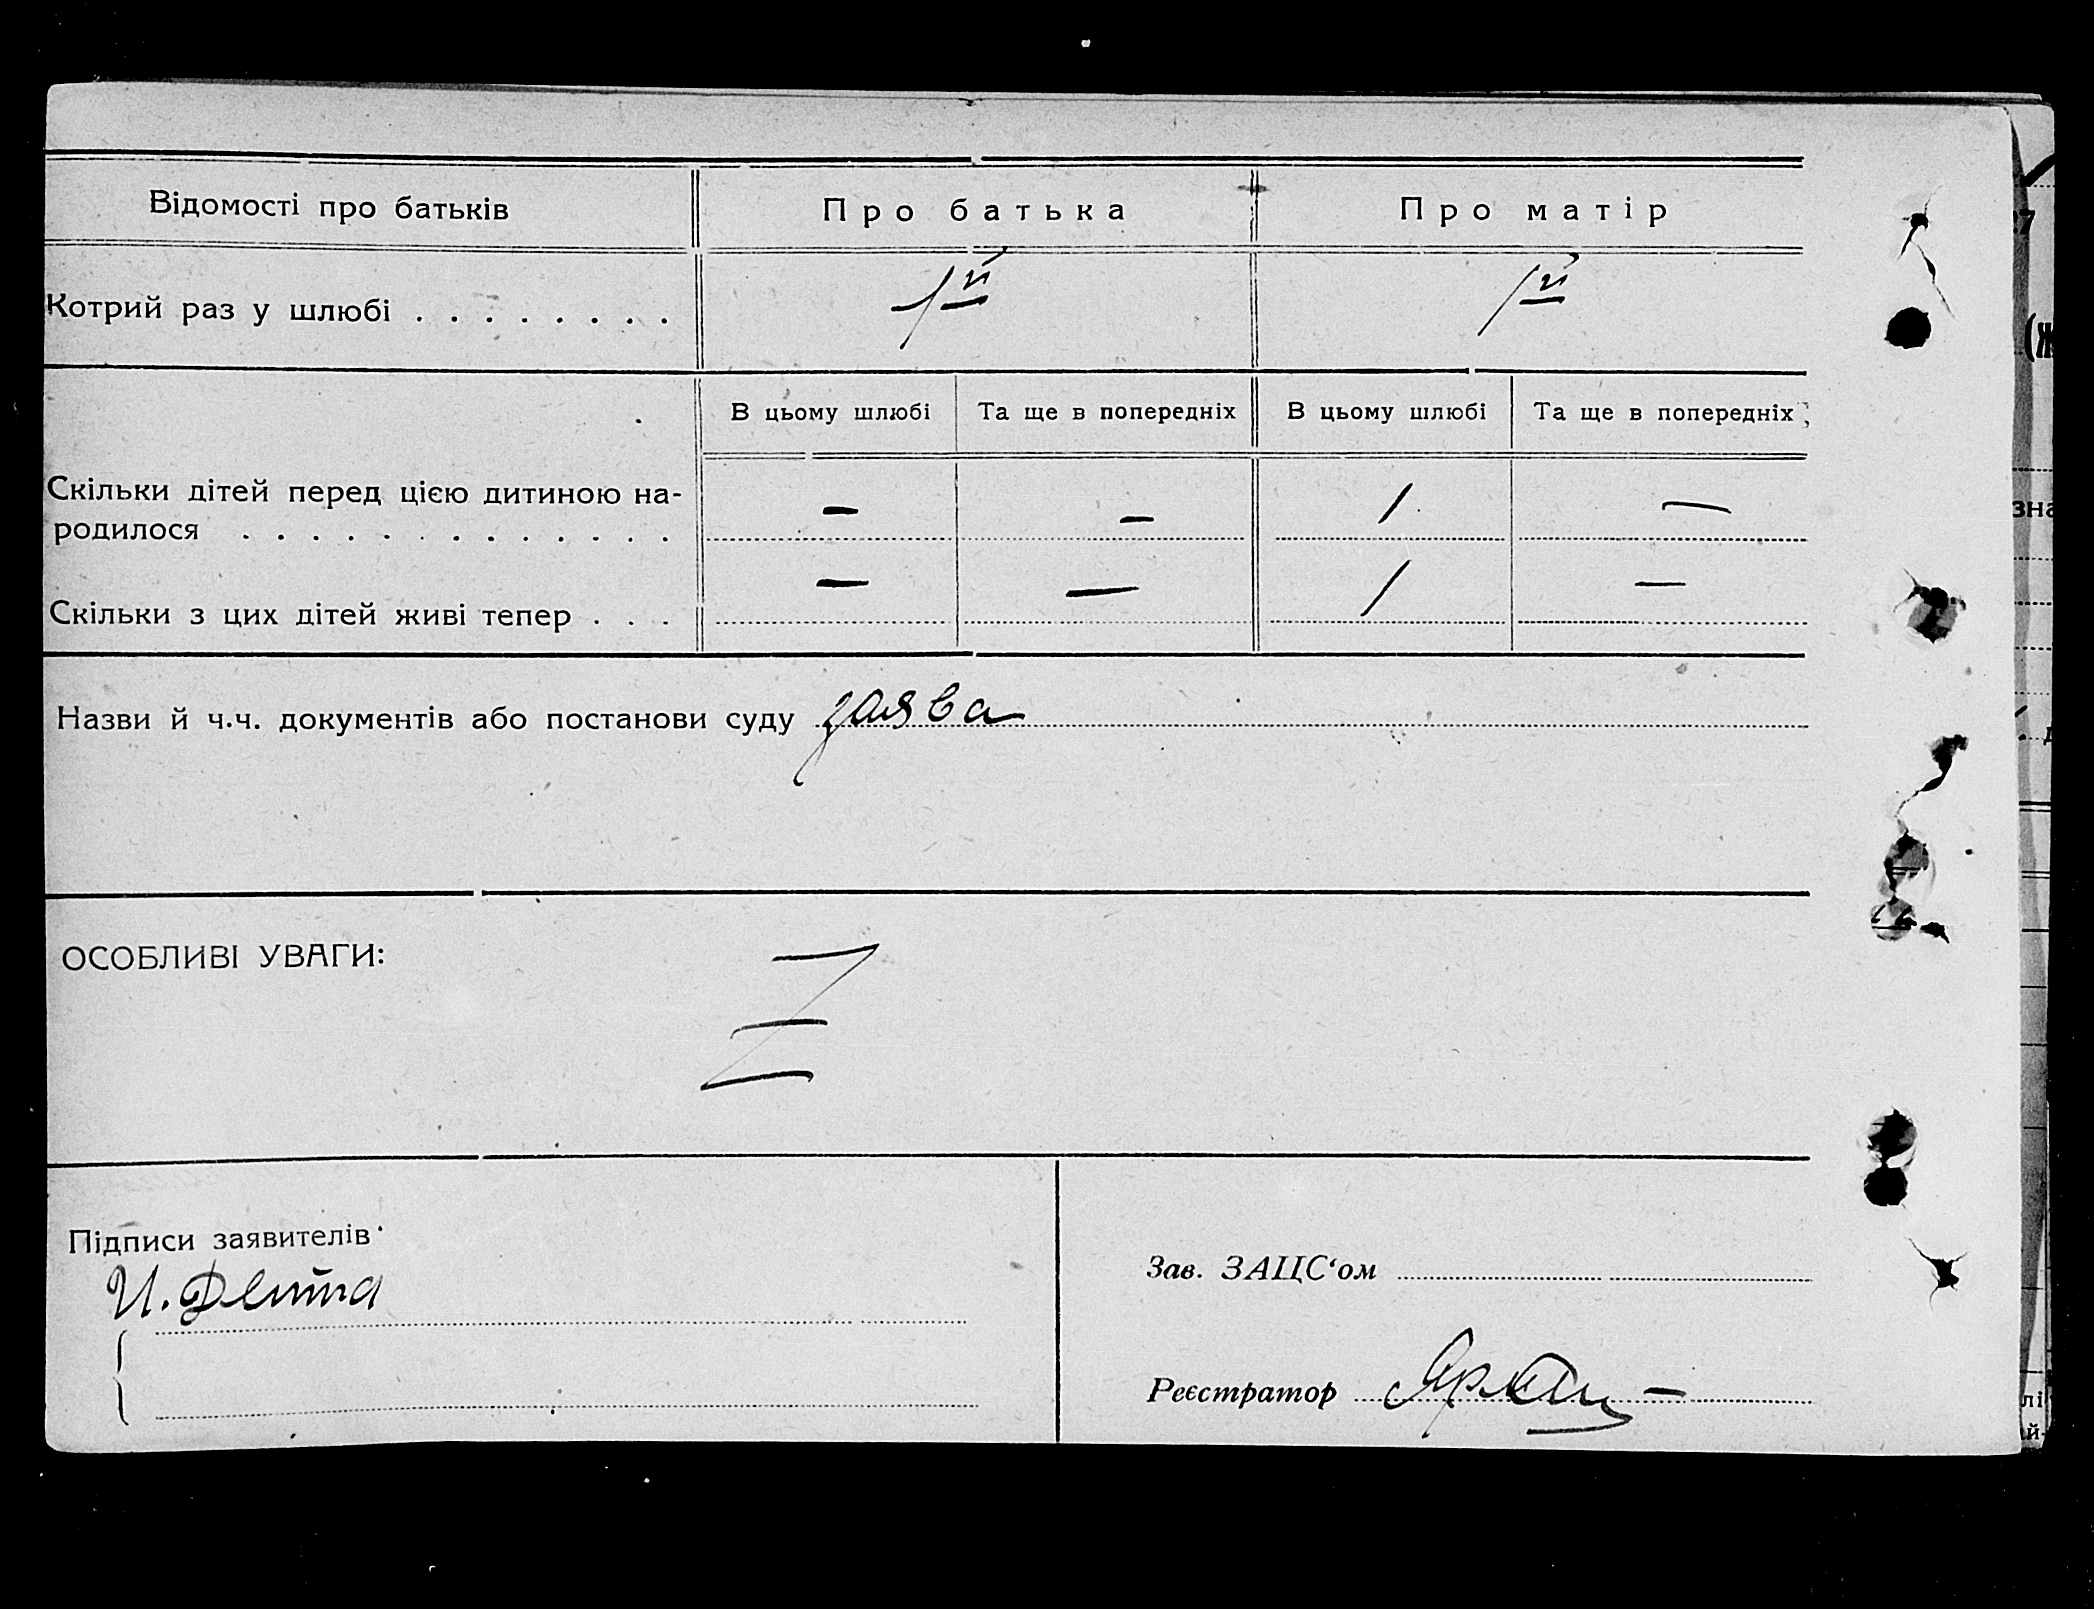 Відомості про батьків Про батька Про матір
Котрий раз у шлюбі . . . . . . . . 1й 1й
В цьому шлюбі Та ще в попередніх В цьому шлюбі Та ще в попередніх
Скільки дітей перед цією дитиною на-
родилося . . . . . . . . . . . . . — — 1 —
Скільки з цих дітей живі тепер . . . — — 1 —
Назви й ч.ч. документів або постанови суду заява
ОСОБЛИВІ УВАГИ:
Підписи заявителів
И.
Зав. ЗАЦС‘ом
Реєстратор